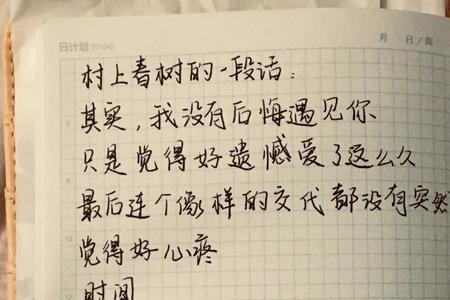 日计划 TO-DO
月 日/周
村上春树的一段话：
其实，我没有后悔遇见你
只是觉得好遗憾爱了这么久
最后连个像样的交代都没有突然
觉得好心疼
时间